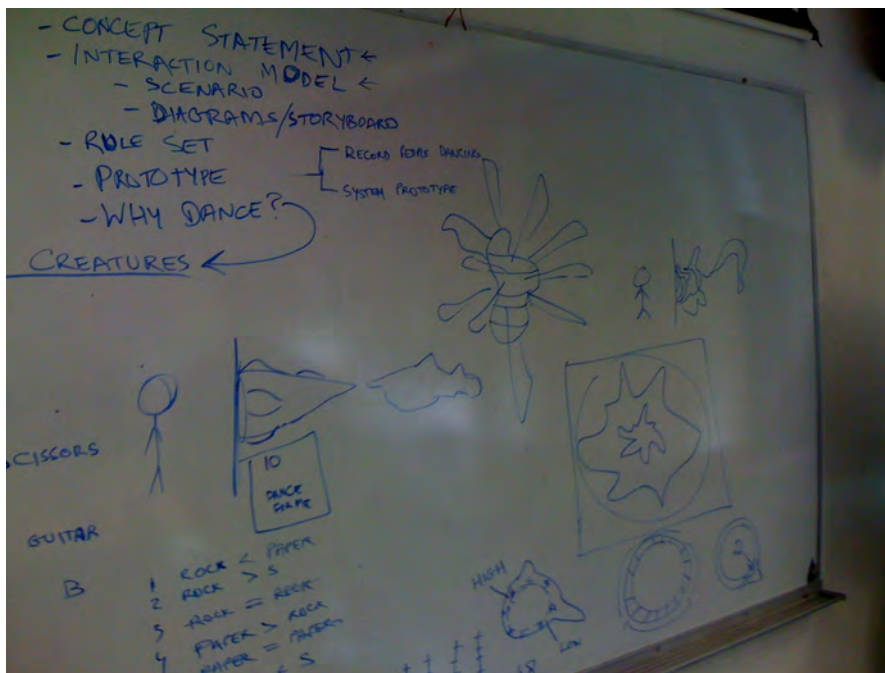 - CONCEPT STATEMENT ←
- INTERACTION MODEL ←
- SCENARIO
- DIAGRAMS/STORYBOARD
- RULE SET
- PROTOTYPE
RECORD PEOPLE DANCING
SYSTEM PROTOTYPE
- WHY DANCE?
CREATURES
CISSORS
10
DANCE
GUITAR
B
1 ROCK < PAPER
2 ROCK > S
3 ROCK = ROCK
4 PAPER > ROCK
PAPER = PAPER
< S
HIGH
LOW